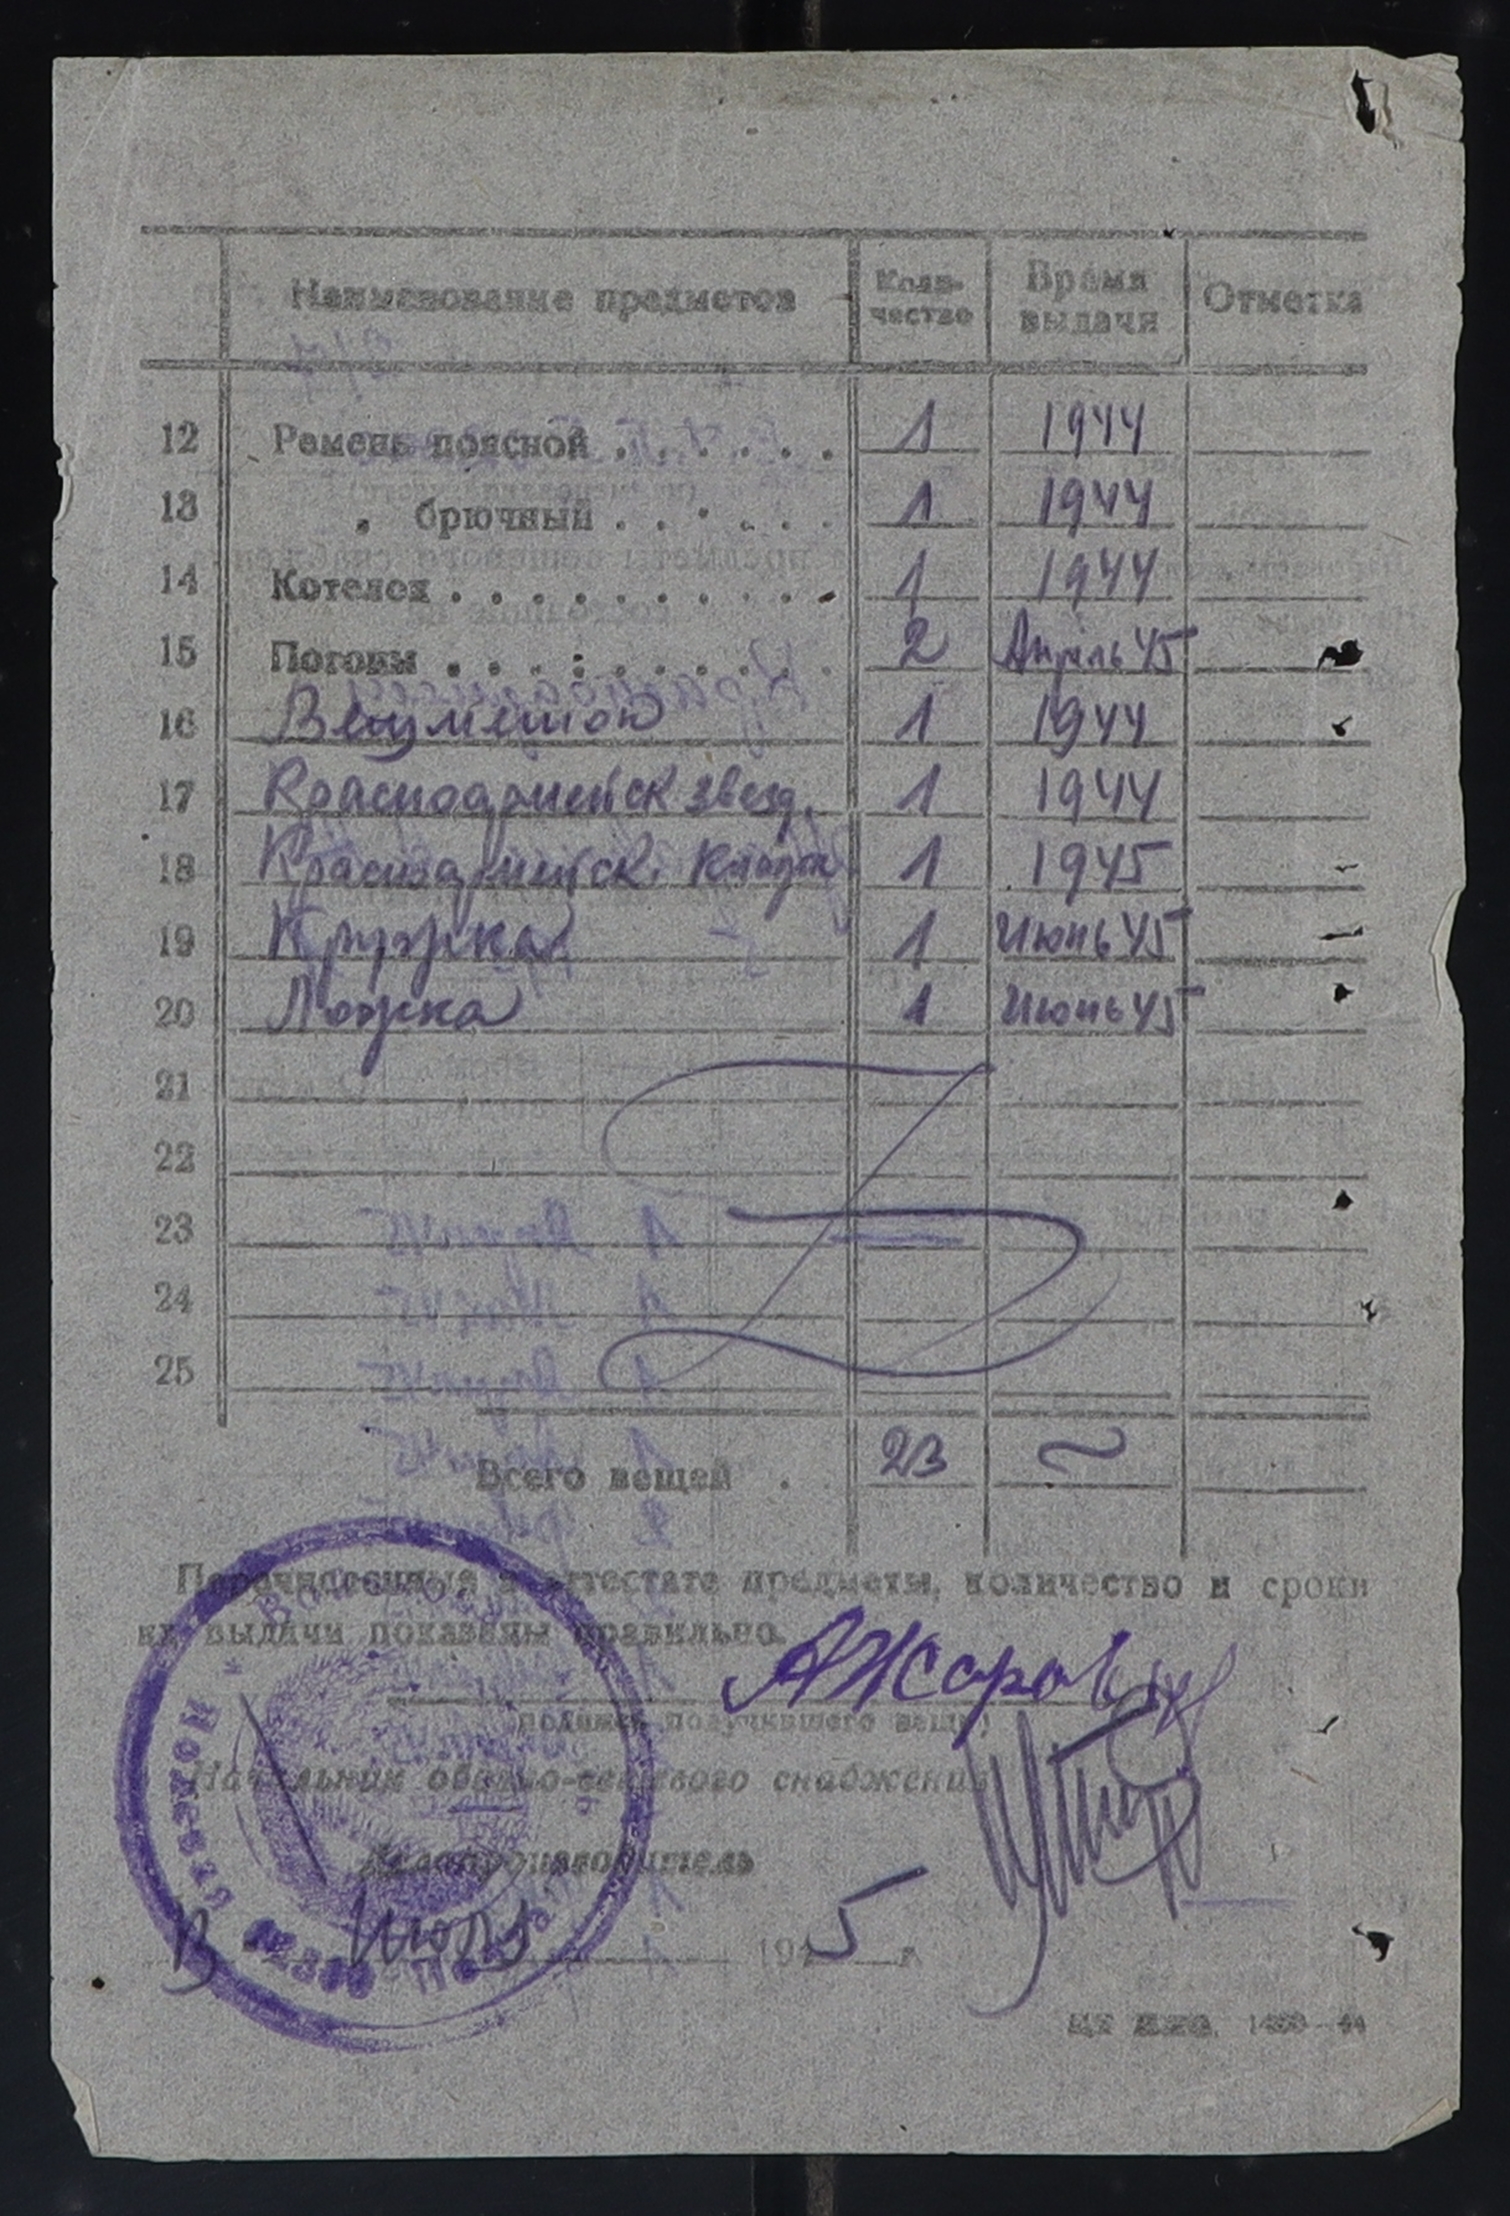 Наименование предметов Коли-чество Время выдачи Отметка
12 Ремень поясной . . . . . . 1 1944
13 „ брючный . . . . . . 1 1944
14 Котелок . . . . . . . . . . 1 1944
15 Погоны . . . . . . . . . . 2 Апрель 45
16 Вещмешок 1 1944
17 Красноармейск звезд. 1 1944
18 Красноармейск. 1 1945
19 Кружка 1 Июнь 45
20 Ложка 1 Июнь 45
21
22
23
24
25
Всего вещей . 23
Перечисленные в аттестате предметы, количество и сроки
их выдачи показаны правильно.
АЖаров
подпись получившего вещи)
Начальник обозно-вещевого снабжения
Делопроизводитель
Июля 1945 г